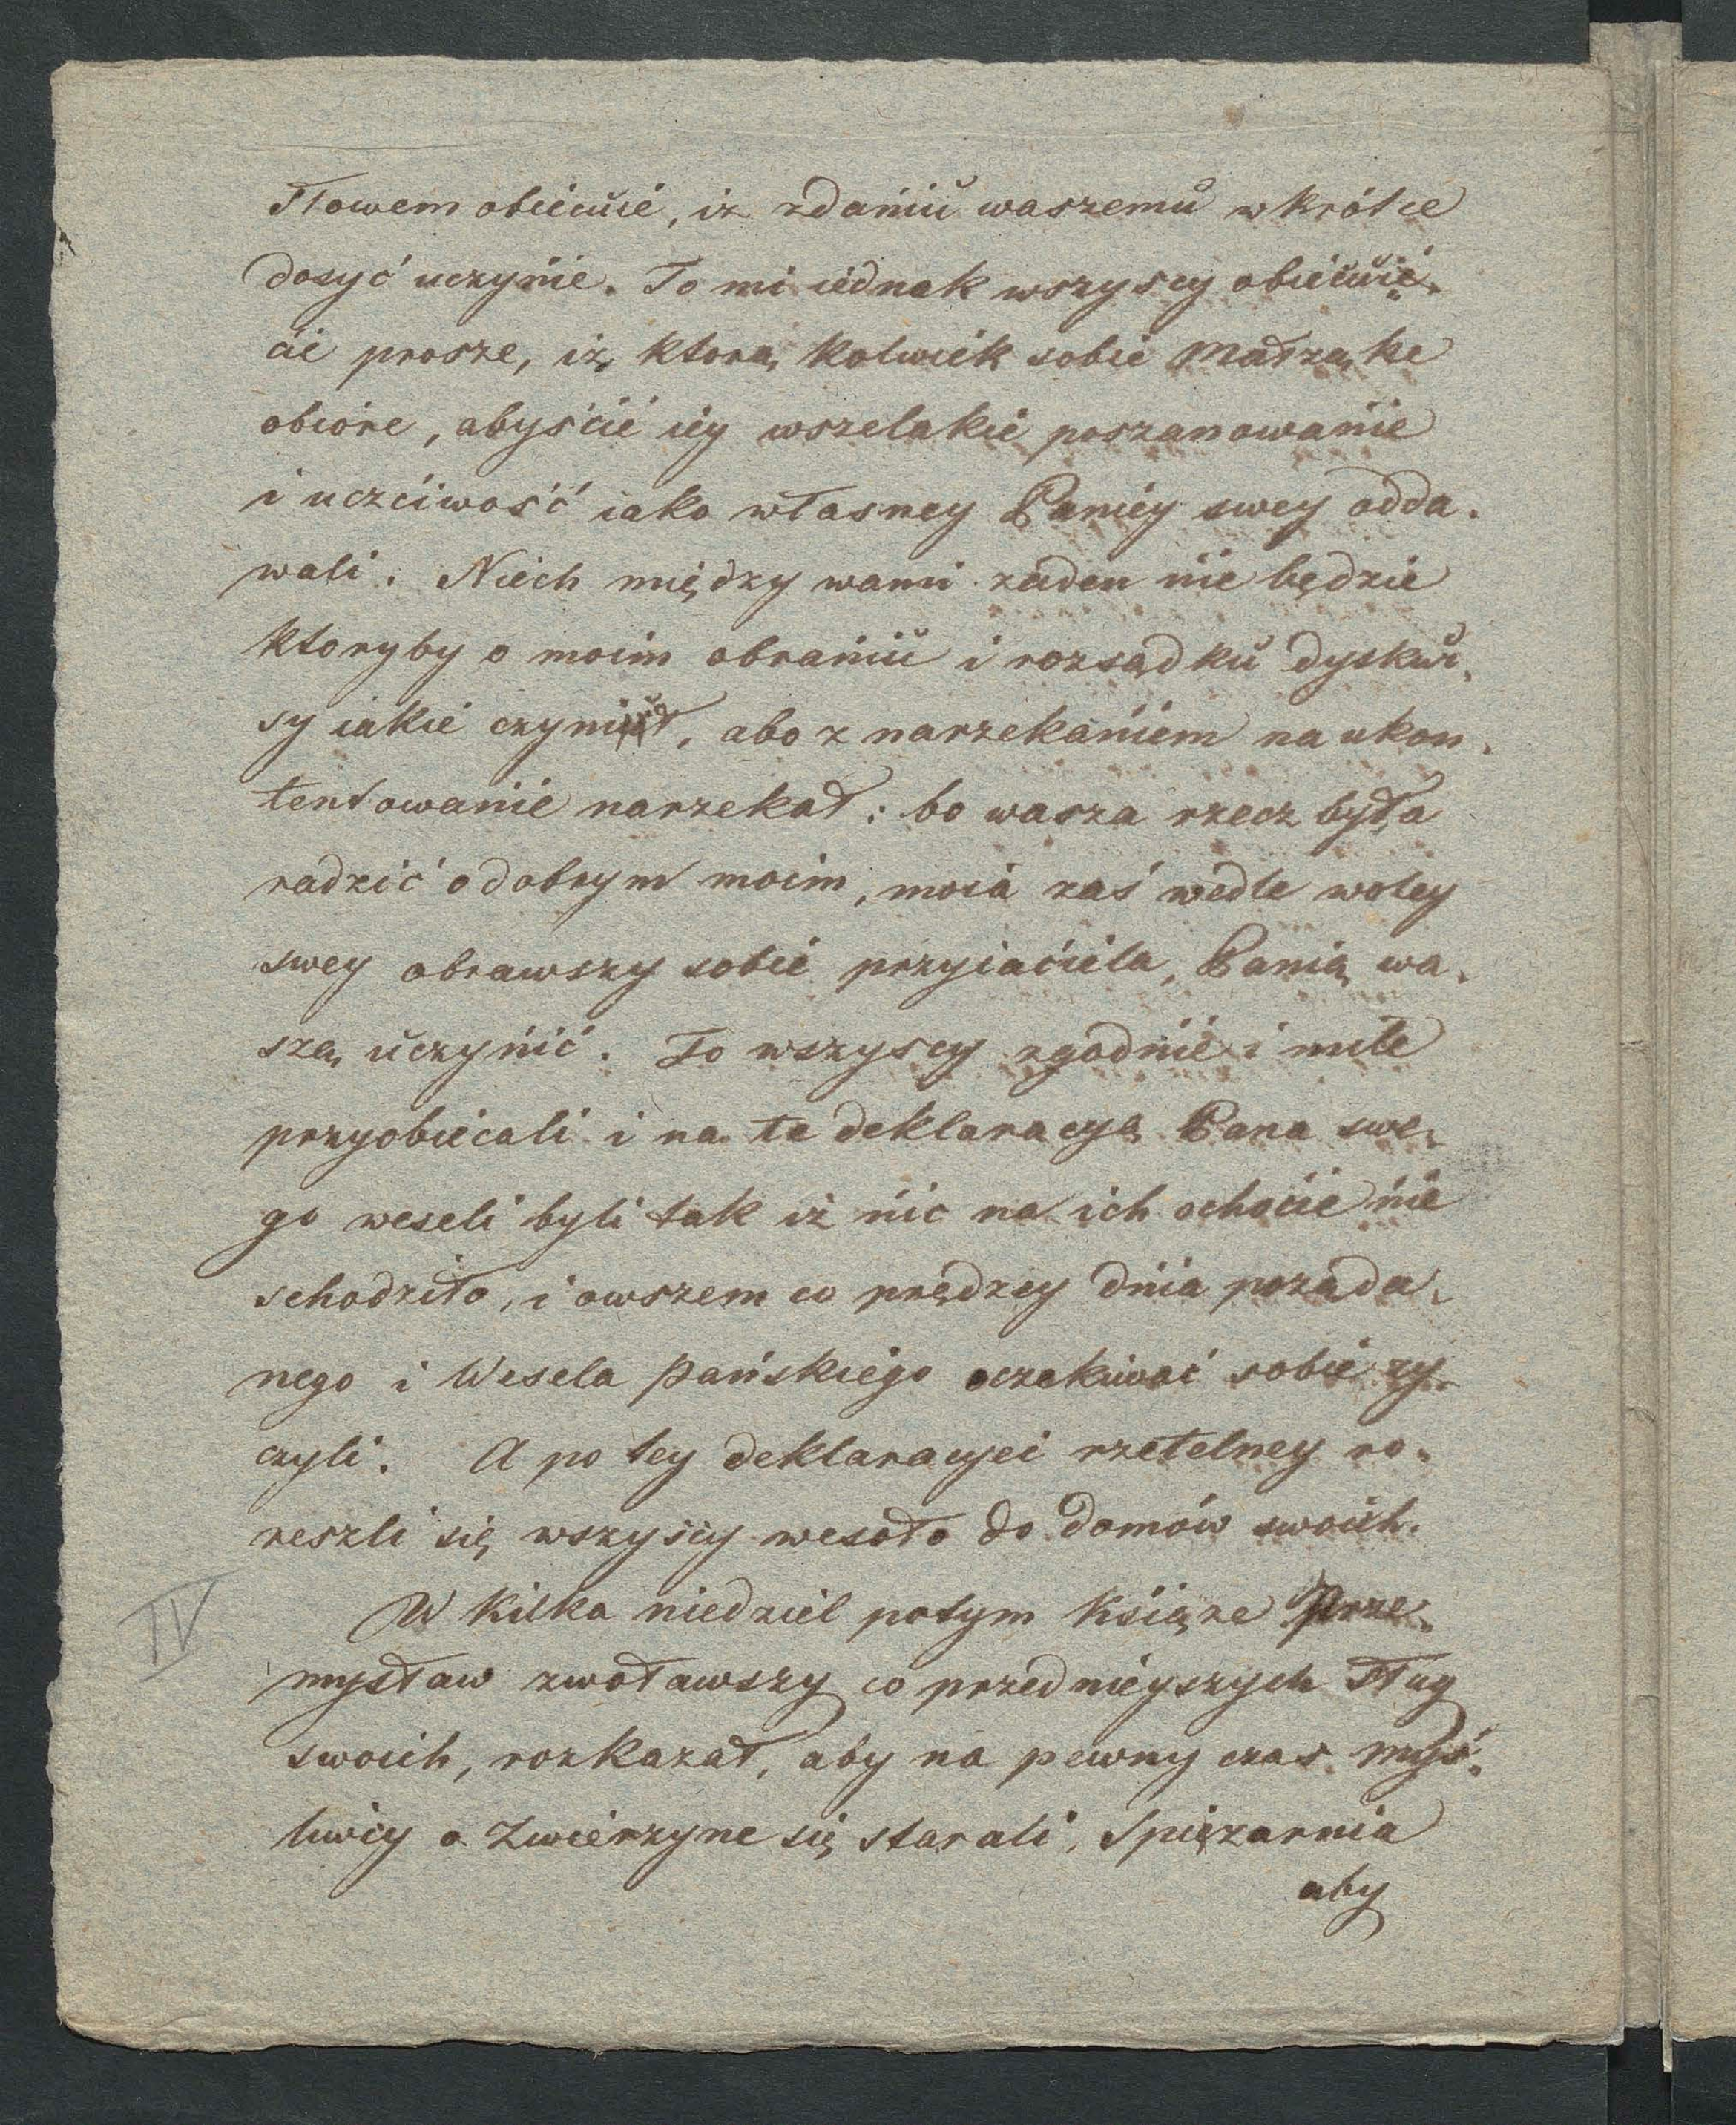 słowem obiecuie, iż zdaniu waszemu w krótce
dosyć uczynie. To mi iednak wszyscy obiecuię.
cie prosze, iż ktorą kolwiek sobie małżąke
obiore, abyście iey wszelakie poszanowanie
i uczciwość iako własney Paniey swey odda.
wali. Niech między wami zaden nie będzie
ktoryby o moim obraniu i rozsądku dyskur.
sy iakie czynił, abo z narzekaniem na ukon.
tentowanie narzekał: bo wasza rzecz była
radzić o dobrym moim, moia zaś wedle woley
swey obrawszy sobie przyiaciela, Panią wa.
szą uczynić. To wszyscy zgodnie i mile
przyobiecali i na tę deklaracyą Pana swe.
go weseli byli tak iż nic na ich ochocie nie
schodziło, i owszem co prędzey dnia pożąda.
nego i Wesela Pańskiego oczekiwać sobie zy.
czyli. A po tey deklaracyei rzetelney ro.
zeszli się wszyscy wesoło do domów swoich.
IV
W kilka niedziel potym Książe Prze.
mysław zwoławszy co przednieyszych sług
swoich, rozkazał, aby na pewny czas myś.
liwcy o Zwierzyne się starali, Spiżarnia
aby